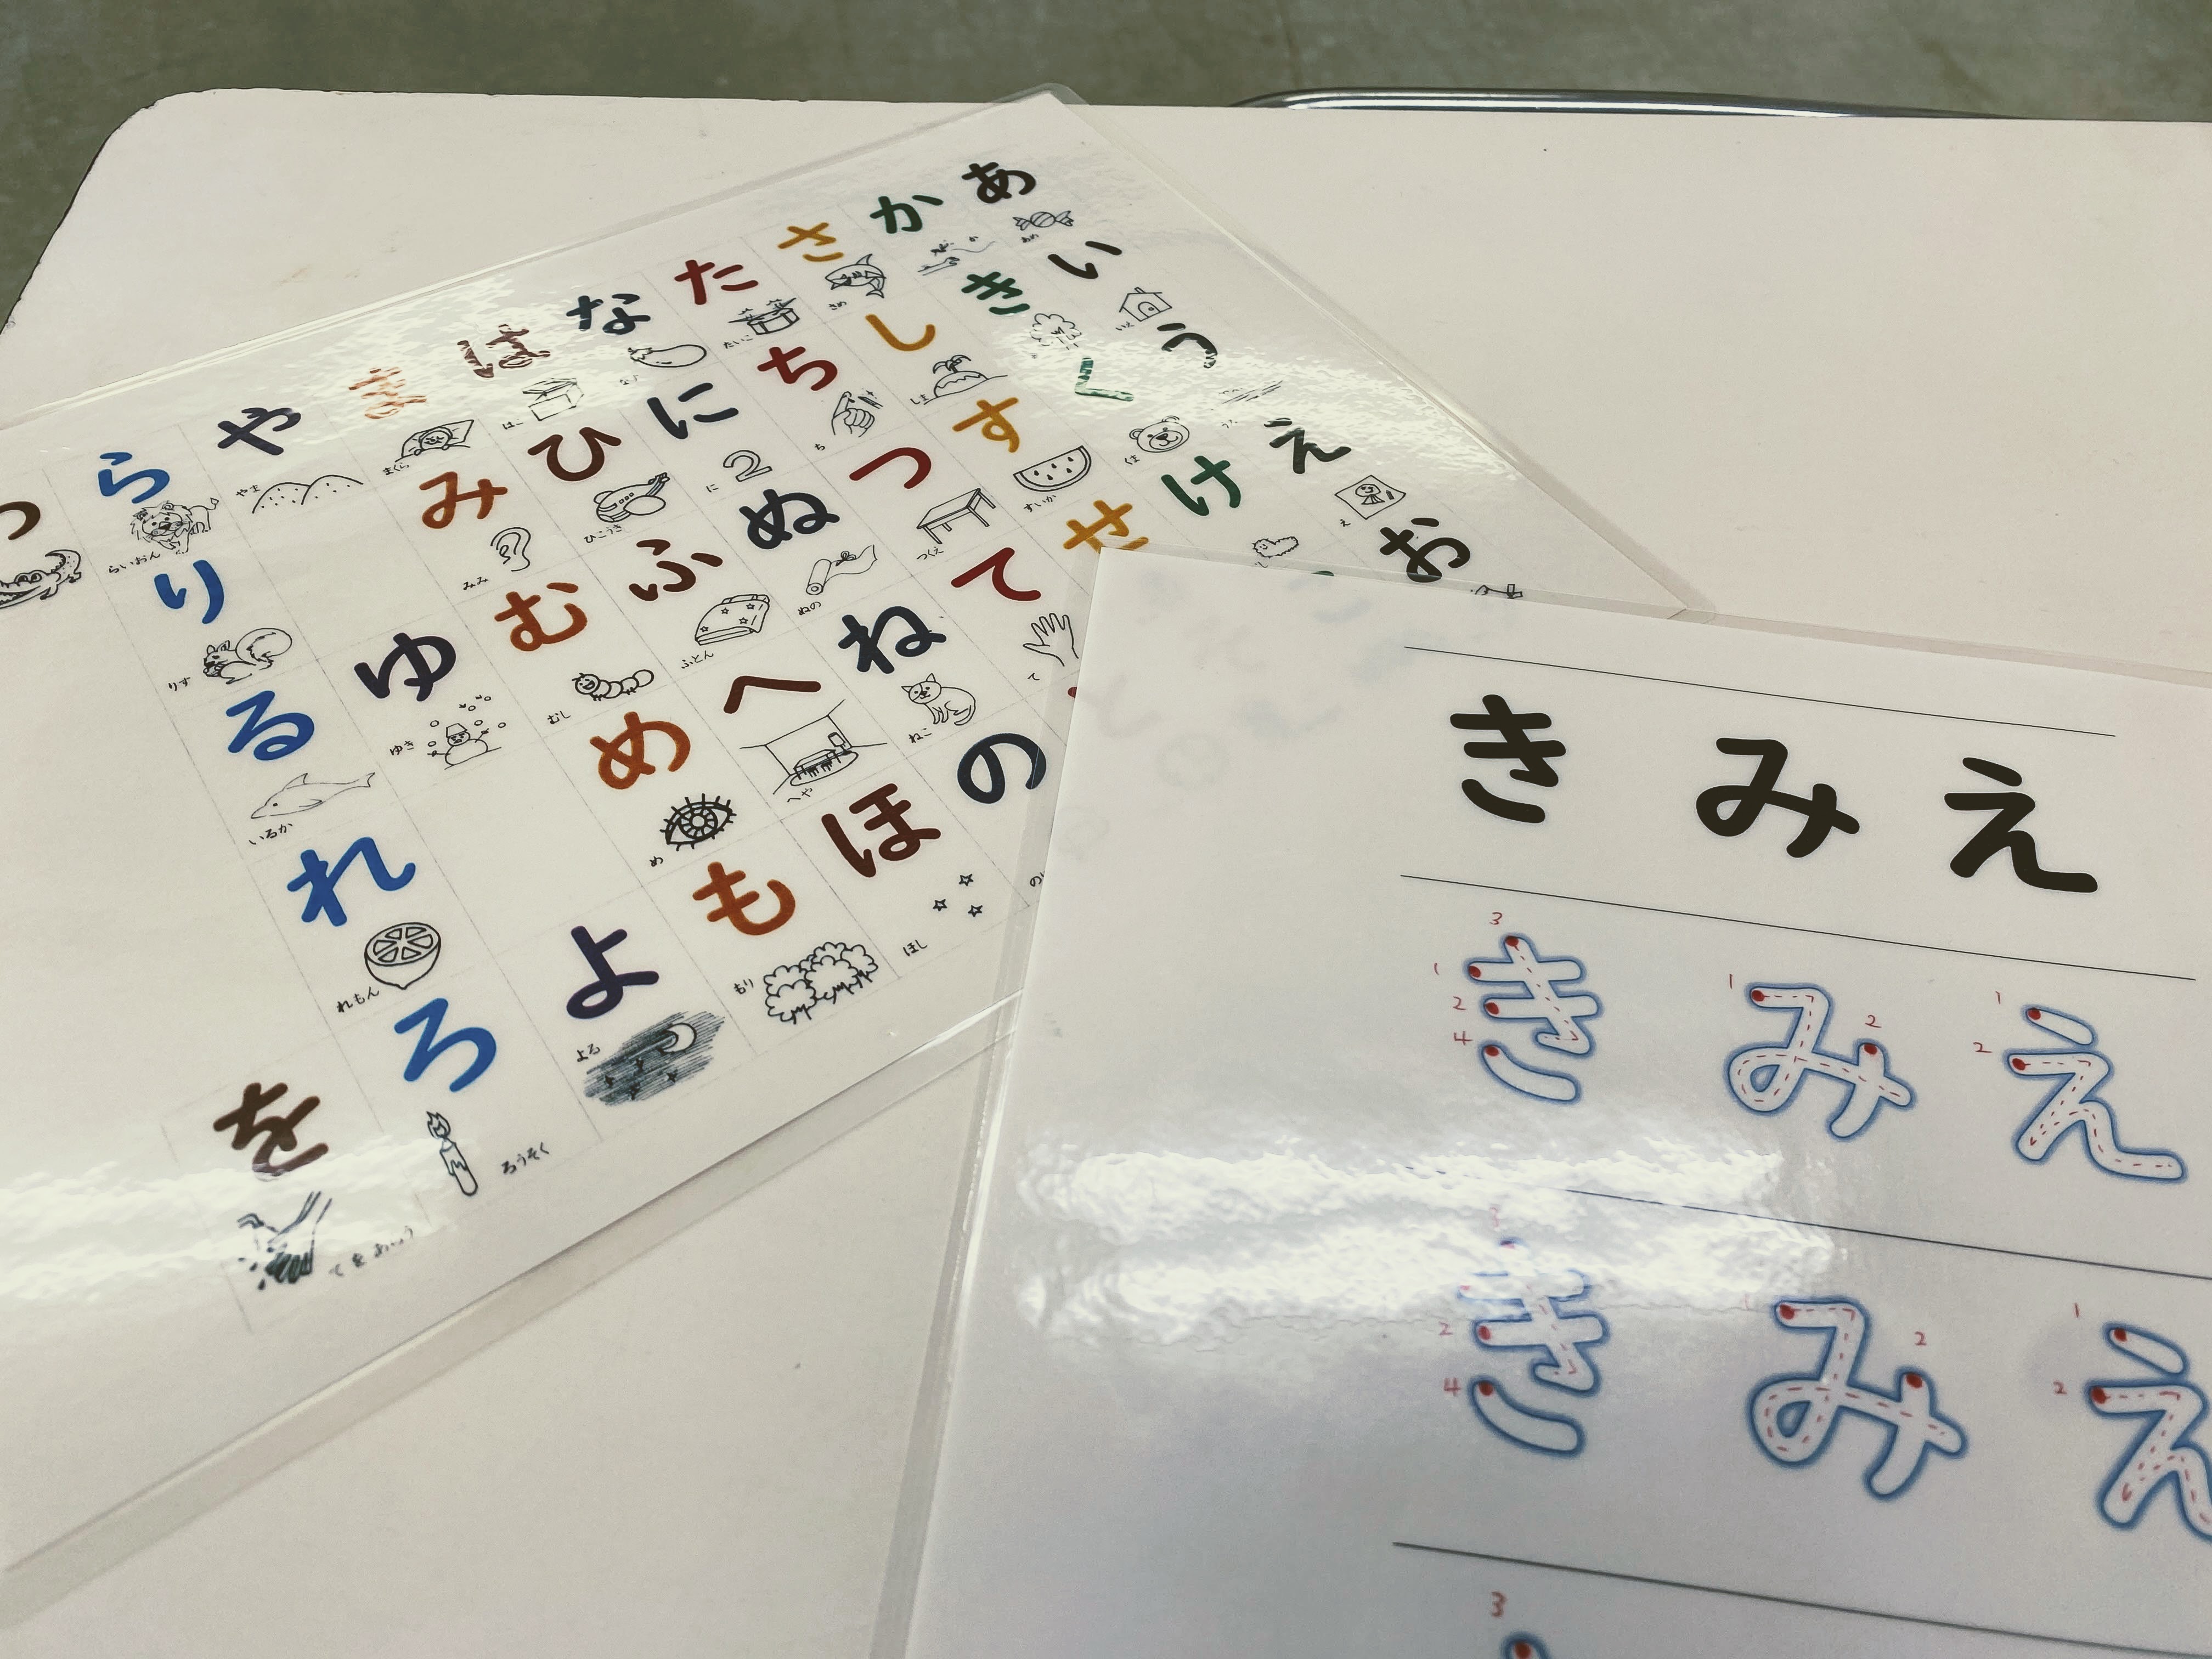 あ か さ た な は ま や ら
い き し ち に ひ み り
う く す つ ぬ ふ む ゆ る
え け せ て ね へ め れ
お の ほ も よ ろ を
さめ たいこ
まくら やま らいおん
しま ち に ひこうき みみ りす
くま すいか つくえ ぬの ふとん むし ゆき いるか
え て ねこ へや め れもん
ほし もり よる ろうそく
てをあらう
きみえ
3
1 2 4 きみえ 1 2 1 2
2 4 きみえ 2 1 2
3